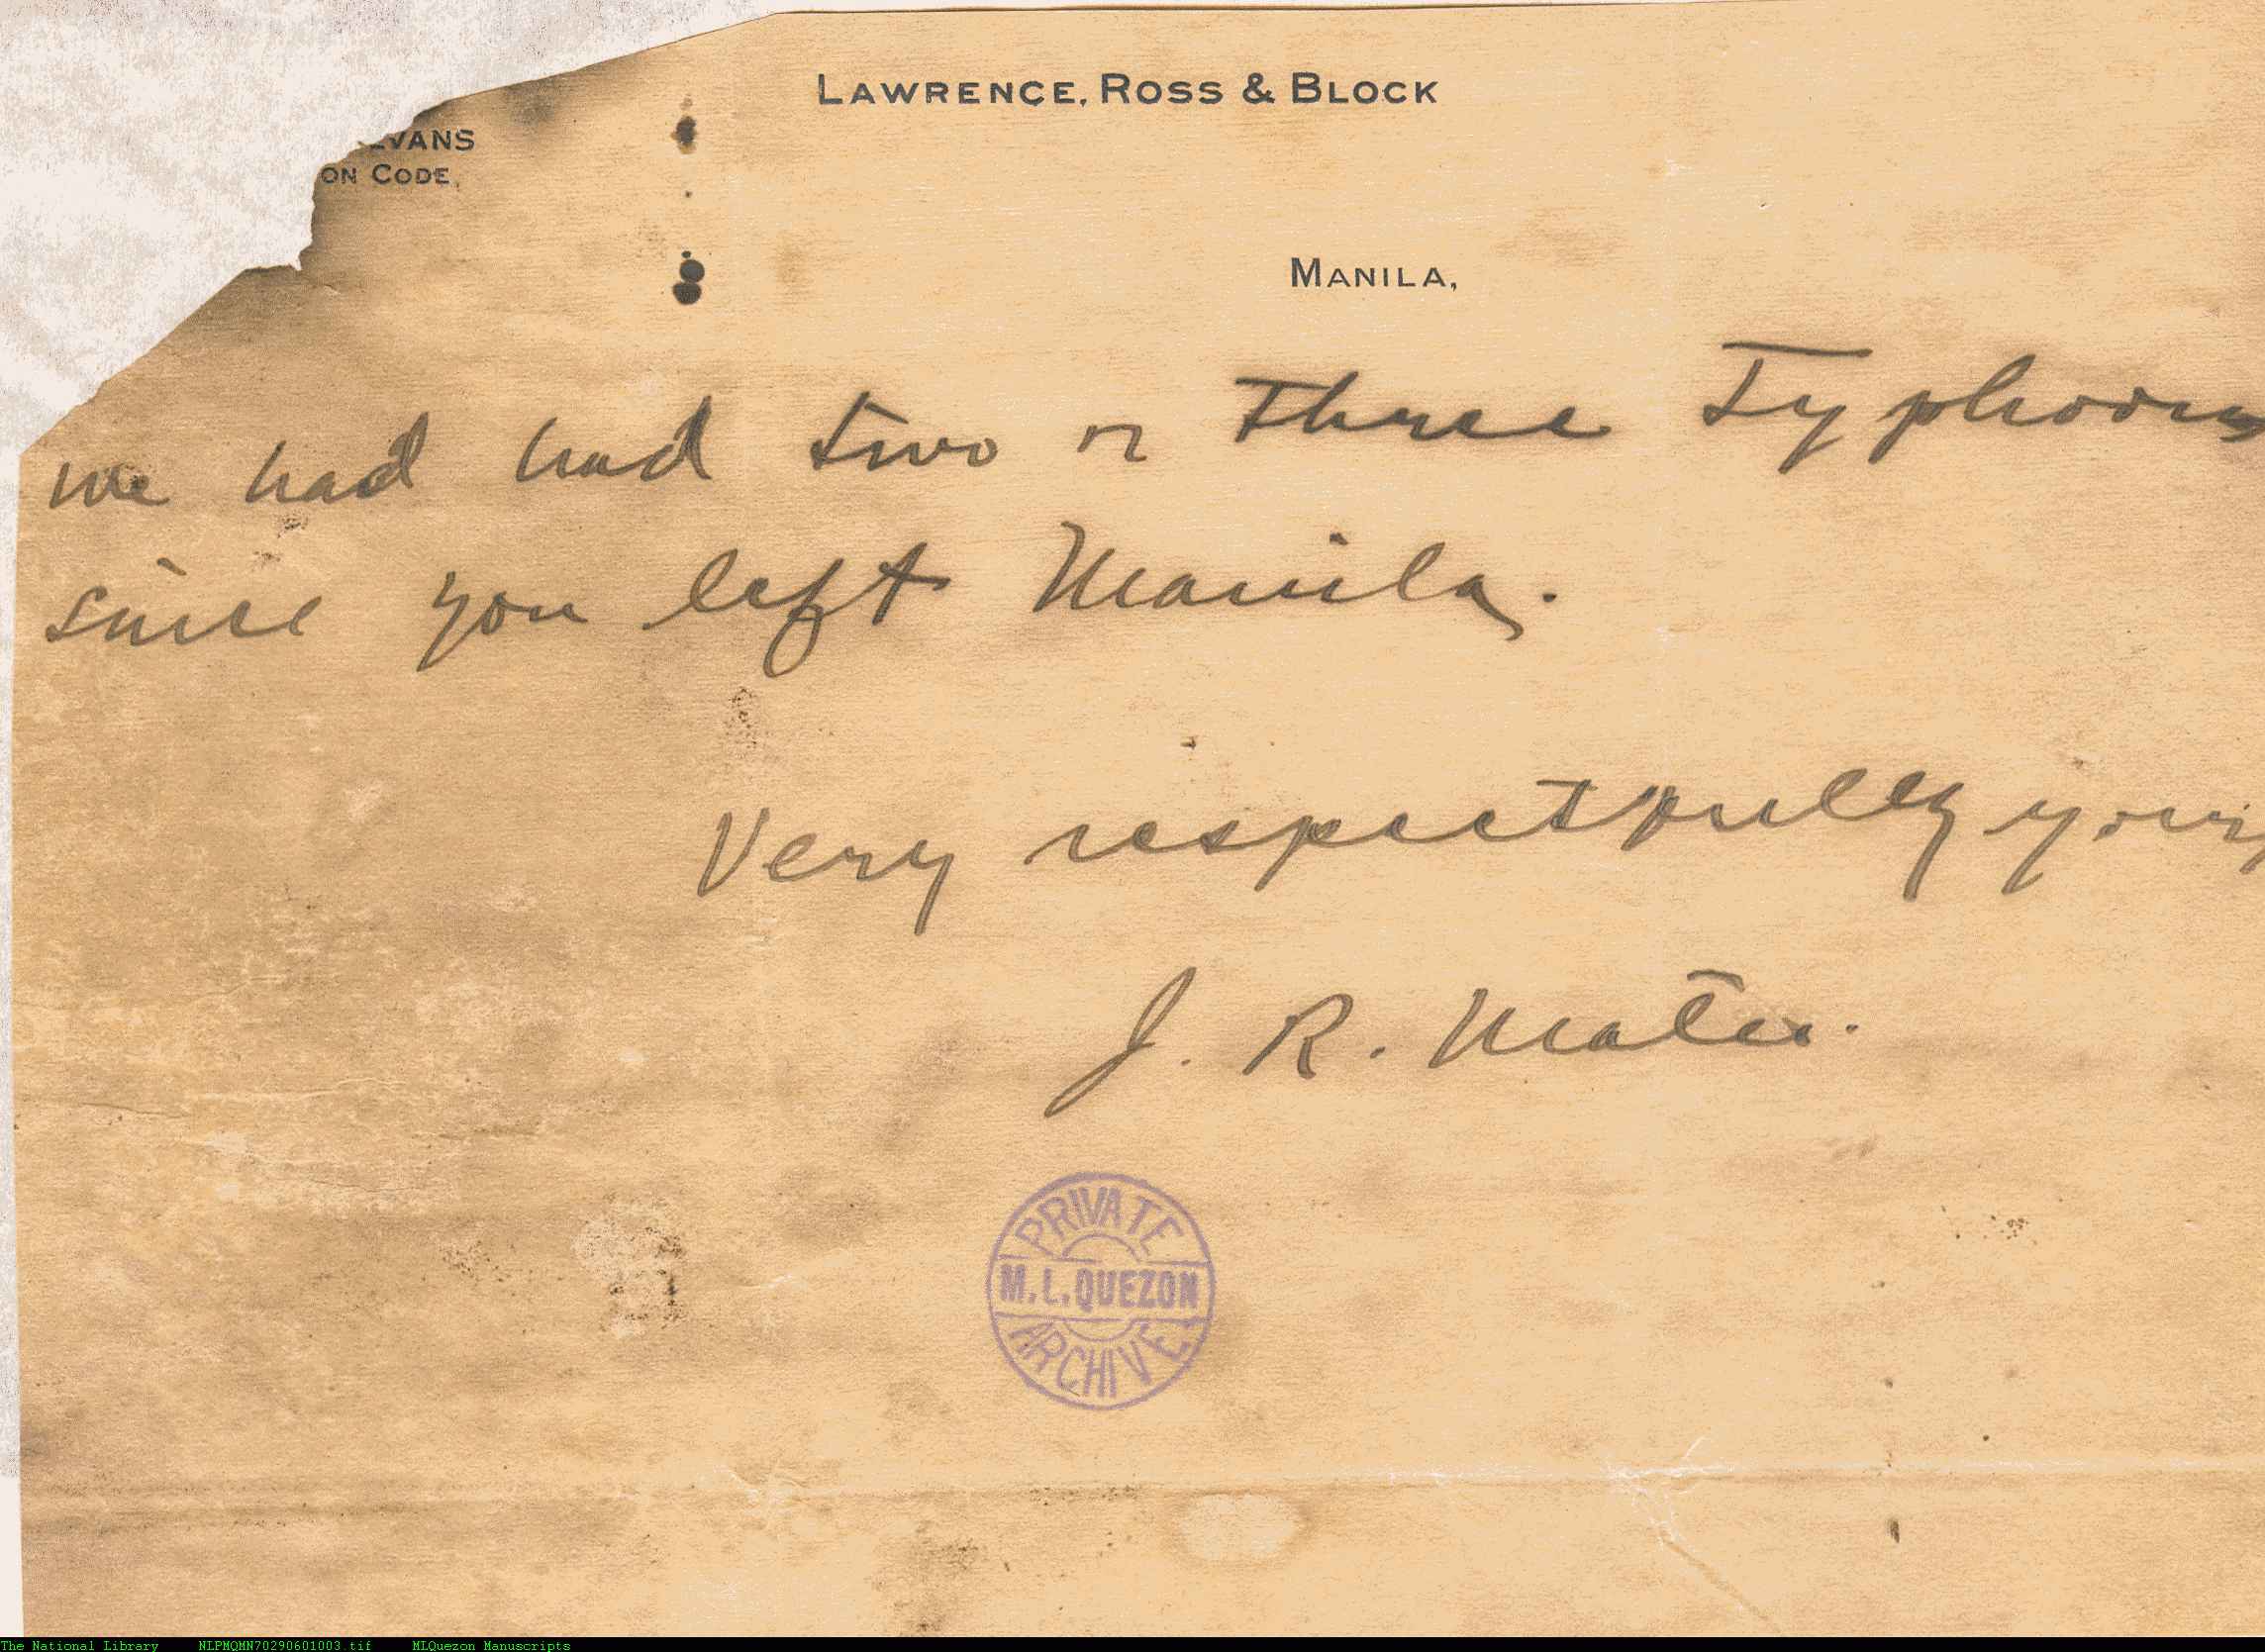 LAWRENCE, ROSS & BLOCK
EVANS
ON CODE.
MANILA,
we had had two or three Typhoons
since you left Manila.
Very respectfully yours,
J. R. Mateo.
PRIVATE
M.L.QUEZON
ARCHIVE
The National Library NLPMQMN70290601003.tif MLQuezon Manuscripts